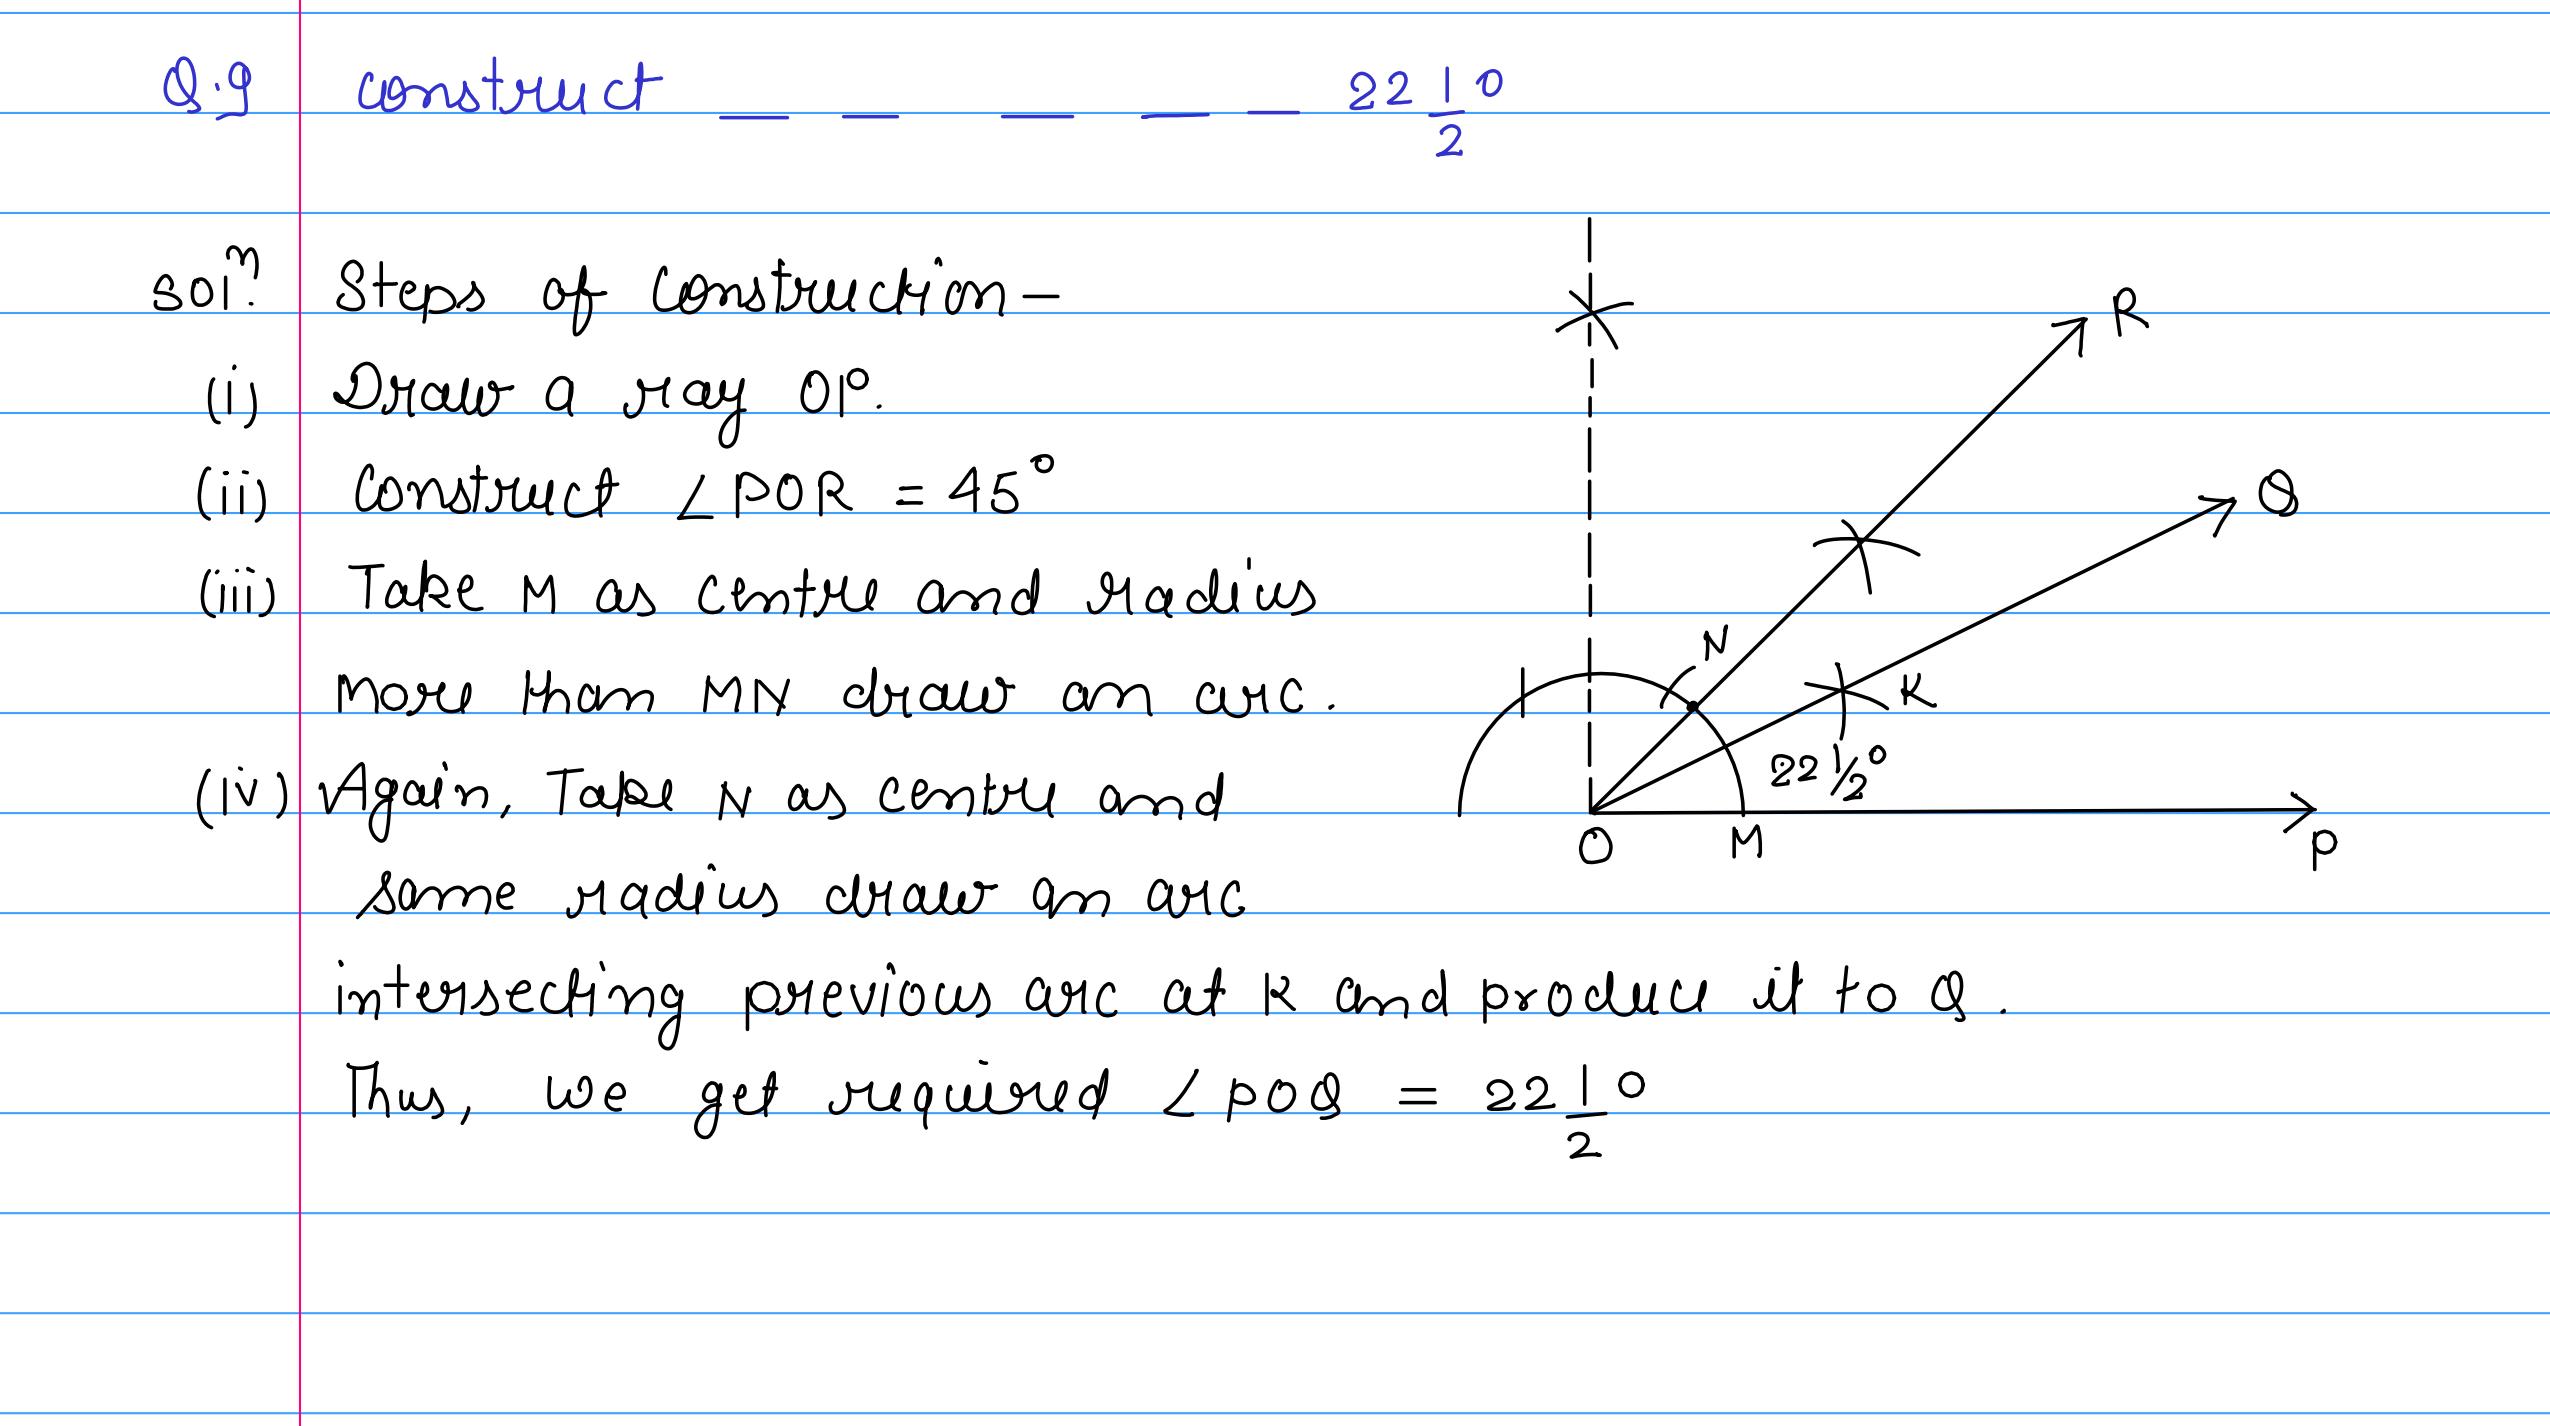 Q.9 Construct _ _ _ _ _ 22 1/2°
Solⁿ. Steps of Construction–
(i) Draw a ray OP.
(ii) Construct ∠POR = 45°
(iii) Take M as centre and radius
more than MN draw an arc.
(iv) Again, Take N as centre and
same radius draw an arc
intersecting previous arc at K and produce it to Q.
Thus, we get required ∠POQ = 22 1/2°
R
Q
N
K
22 1/2°
O
M
P